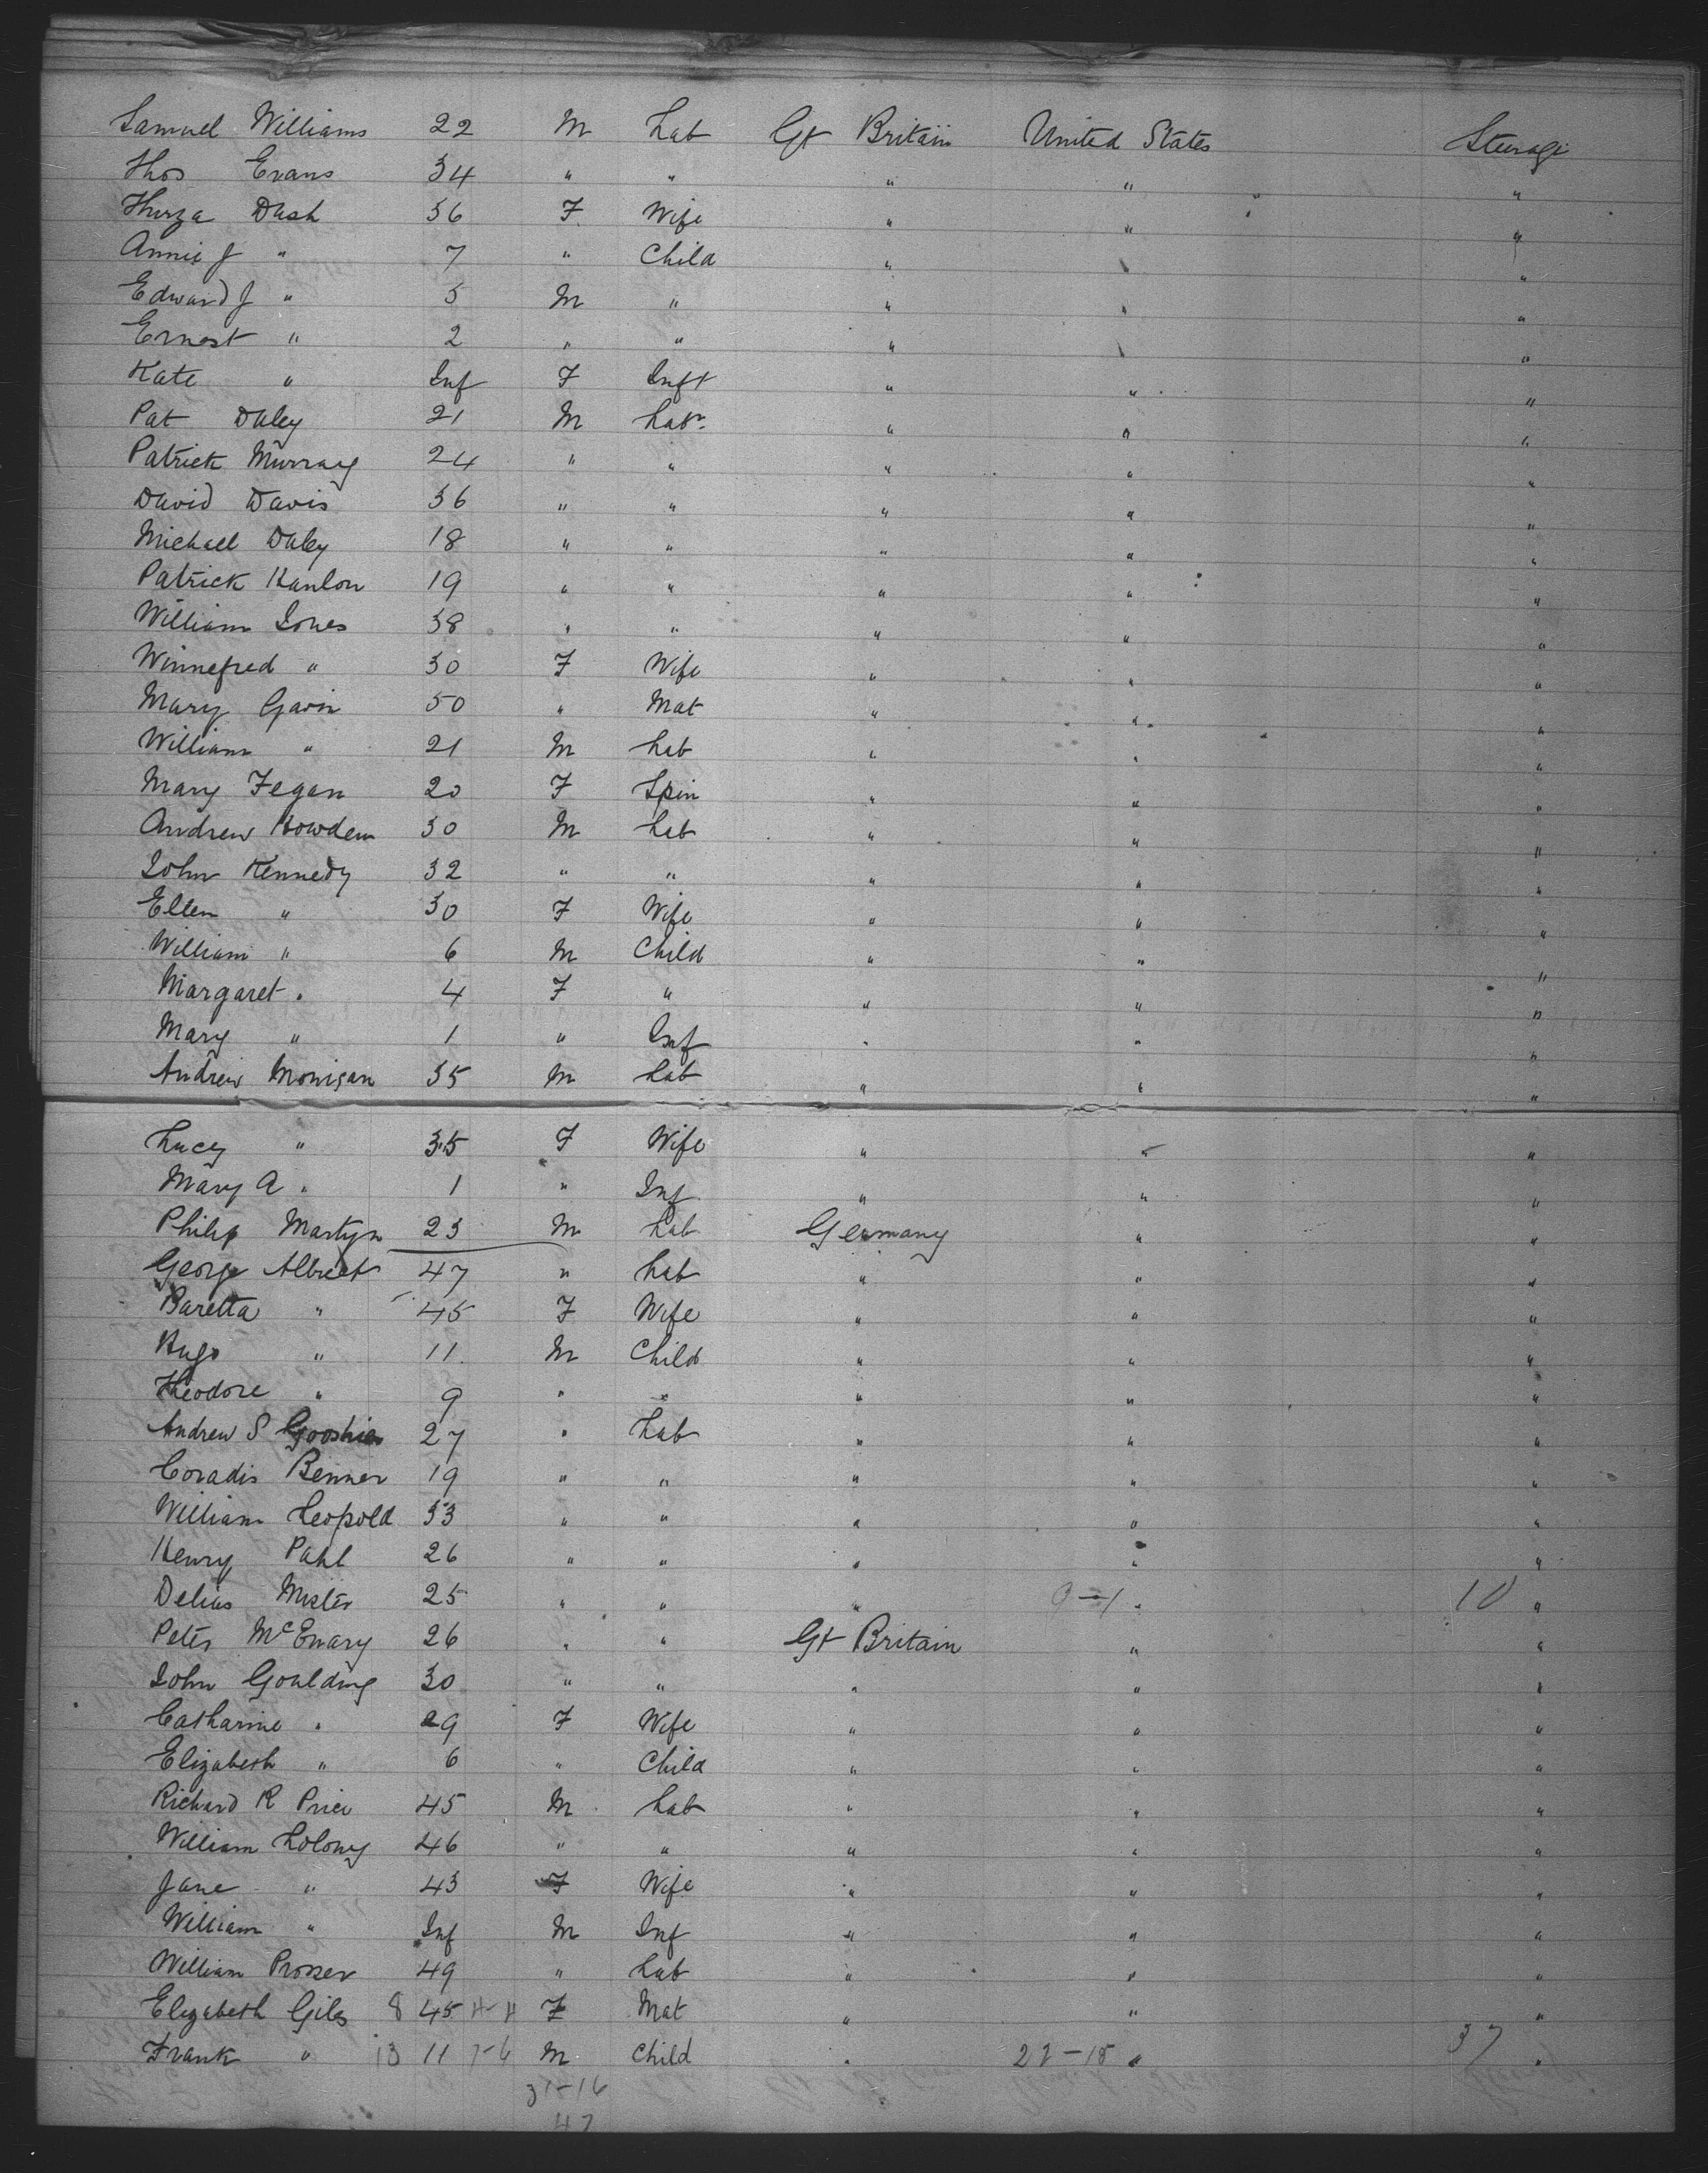 Samuel Williams 22 M Lab Gt Britain United States Steerage
Thos Evans 34 " " " " "
Thirza Dash 36 F Wife " " "
Annie J " 7 " Child " " "
Edward J " 5 M " " " "
Ernest " 2 " " " " "
Kate " Inf F Inft " " "
Pat Daley 21 M Labr " " "
Patrick Murray 24 " " " " "
David Davis 36 " " " " "
Michael Daley 18 " " " " "
Patrick Hanlon 19 " " " " "
William Jones 38 " " " " "
Winnefred " 30 F Wife " " "
Mary Gavin 50 " Mat " " "
William " 21 M Lab " " "
Mary Fegan 20 F Spin " " "
Andrew Howden 30 M Lab " " "
John Kennedy 32 " " " " "
Ellen " 30 F Wife " " "
William " 6 M Child " " "
Margaret " 4 F " " " "
Mary " 1 " Inf " " "
Andrew Monigan 35 M Lab " " "
Lucy " 35 F Wife " " "
Mary A " 1 " Inf " " "
Philip Martyn 23 M Lab Germany " "
George Albrect 47 " Lab " " "
Baretta " 45 F Wife " " "
Hugo " 11 M Child " " "
Theodore " 9 " " " " "
Andrew S 27 " Lab " " "
Coradis Benner 19 " " " " "
William Leopold 33 " " " " "
Henry Pahl 26 " " " " "
Delius 25 " " " 9-1 " 10 "
Peter McEnary 26 " " Gt Britain " "
John Goulding 30 " " " " "
Catharine " 29 F Wife " " "
Elizabeth " 6 " Child " " "
Richard R Price 45 M Lab " " "
William Lolony 46 " " " " "
Jane " 43 F Wife " " "
William " Inf M Inf " " "
William Prosser 49 " Lab " " "
Elizabeth Giles 8 45 F Mat " " "
Frank " 13 11 7-6 M Child " 22-15 " 37 "
31-16
47